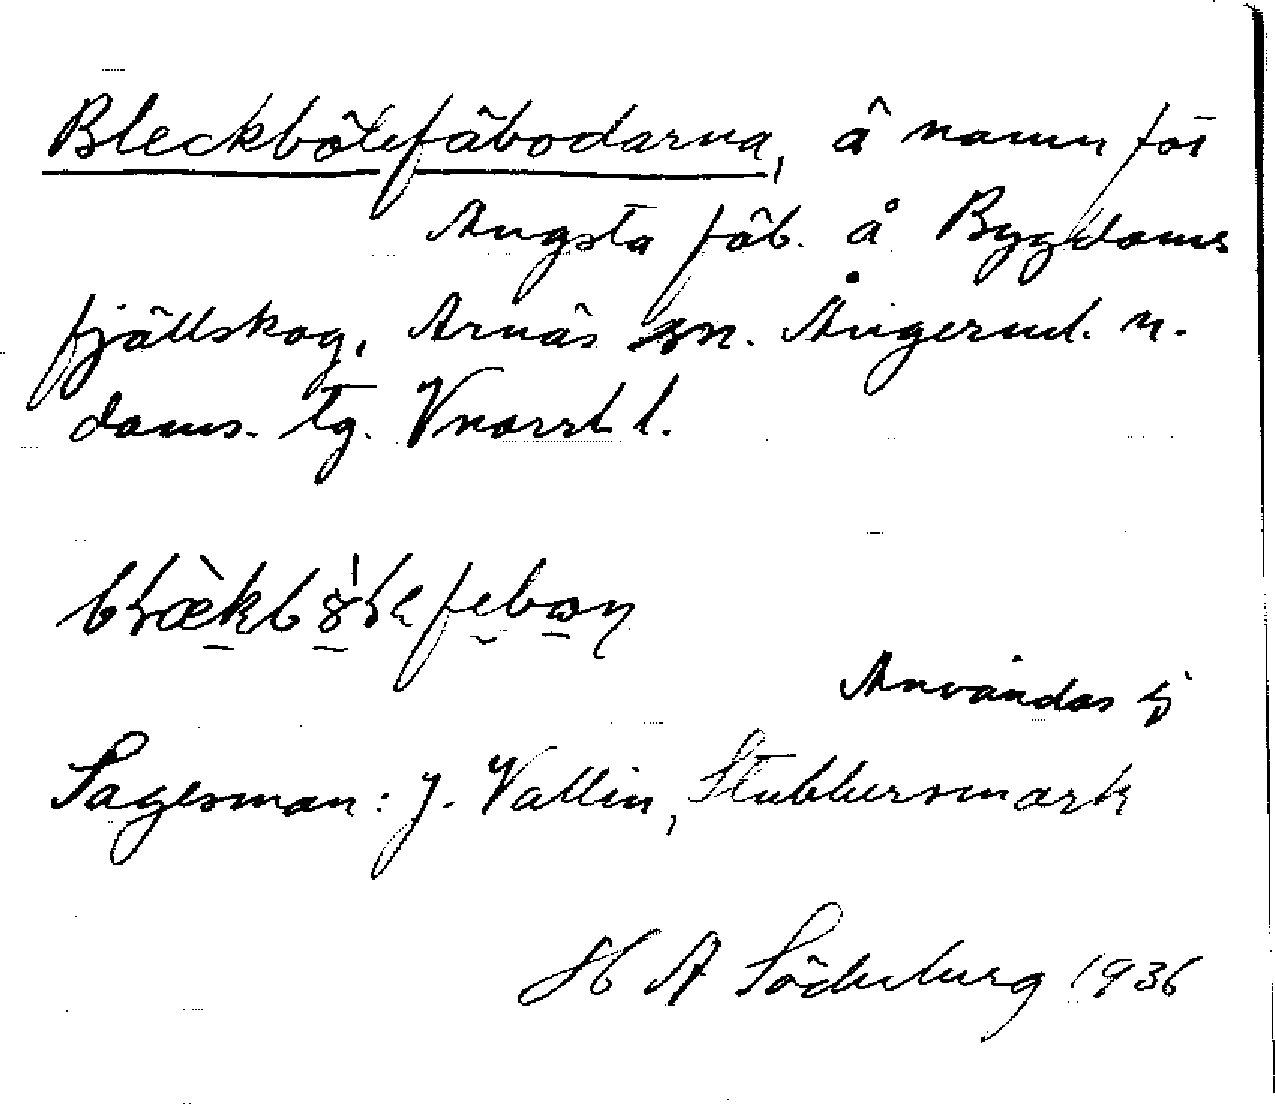 Bleckbölefäbodarna, ä namn för
Ängsta fäb. å Bygdoms
fjällskog, Arnäs sn. Ångerml. n.
doms. tg. Vnorrl l.
Användas ej
Sagesman: J. Vallin, Stubbersmark
H A Söderberg 1936